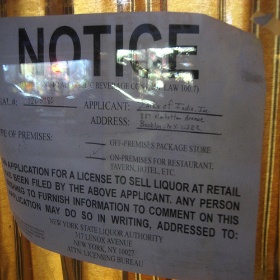 NOTICE
BEVERAGE CONTROL LAW
APPLICANT: of India, Inc
ADDRESS: Manhattan Avenue
Brooklyn, NY
E OF PREMISES:
OFF-PREMISES PACKAGE STORE
✓ ON-PREMISES FOR RESTAURANT,
TAVERN, HOTEL, ETC.
AN APPLICATION FOR A LICENSE TO SELL LIQUOR AT RETAIL
BEEN FILED BY THE ABOVE APPLICANT. ANY PERSON
TO FURNISH INFORMATION TO COMMENT ON THIS
PLICATION MAY DO SO IN WRITING, ADDRESSED TO:
NEW YORK STATE LIQUOR AUTHORITY
317 LENOX AVENUE
NEW YORK, NY 10027
ATTN. LICENSING BUREAU